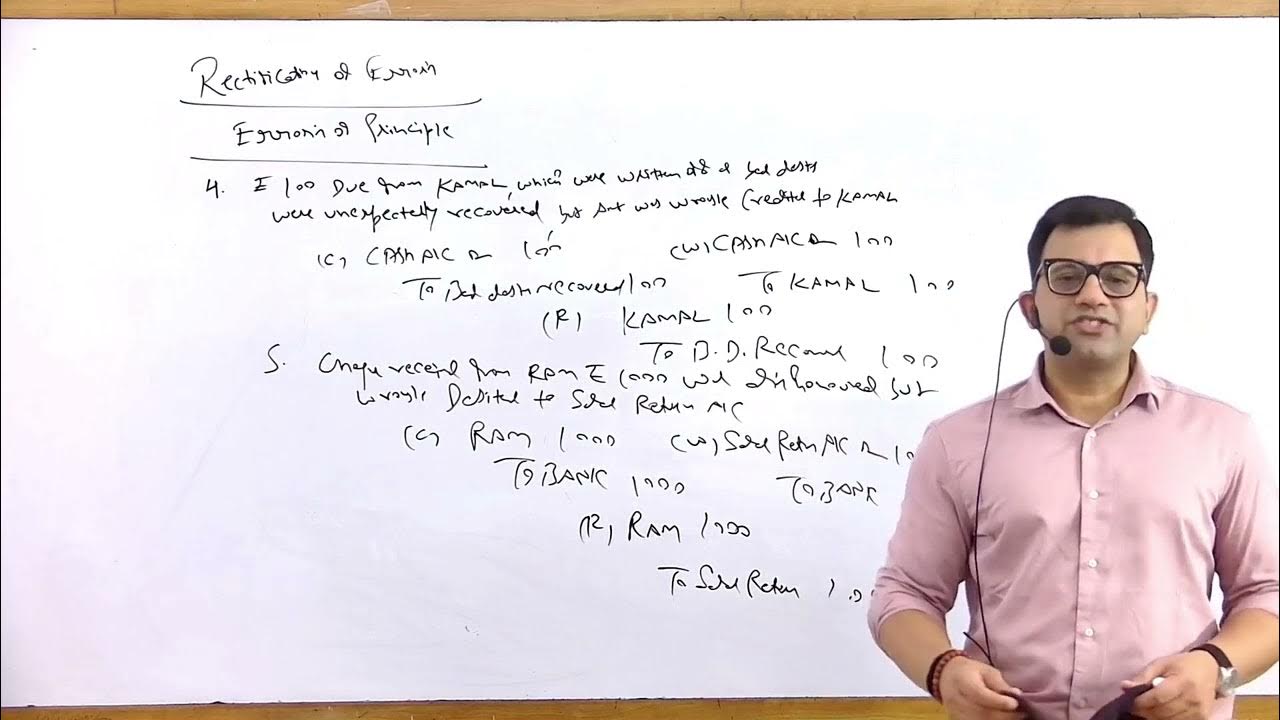 Rectification of Errors
Errors of Principle
4. ₹ 100 Due from KAMAL, which were written off as bad debts
were unexpectedly recovered but Amt was wrongly Credited to KAMAL
(C) CASH A/C Dr 100 (W) CASH A/C Dr 100
To Bad debts recovered 100 To KAMAL 100
(R) KAMAL 100
To B.D. Recovered 100
5. Cheque received from RAM ₹ 1000 was dishonoured but
wrongly Debited to Sales Return A/C
(C) RAM 1000 (W) Sales Return A/C Dr
To BANK 1000 To BANK
(R) RAM 1000
To Sales Return